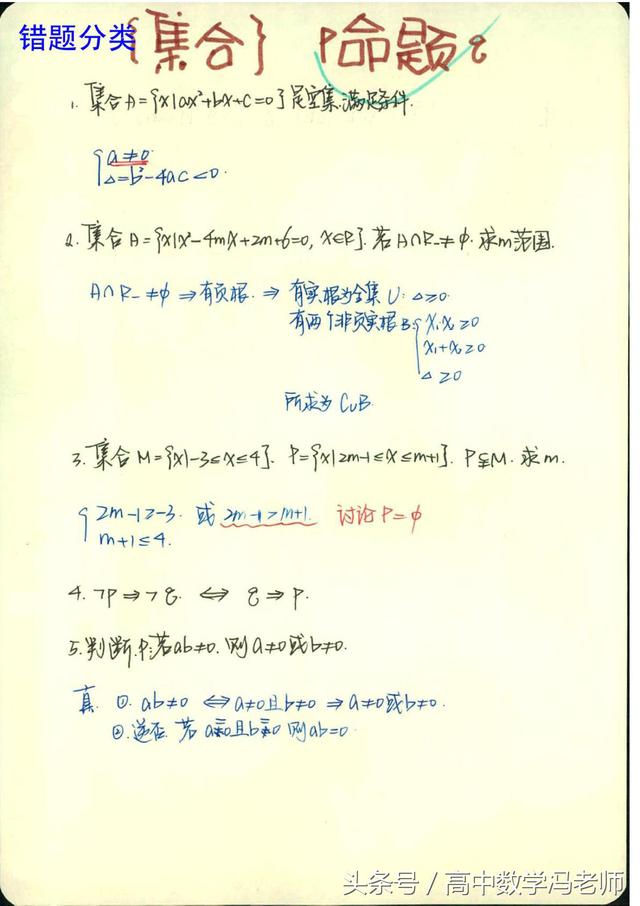 错题分类
{集合} p命题q
1. 集合A={x|ax²+bx+c=0}是空集.满足条件.
{a≠0.
△=b²-4ac<0.
2. 集合A={x|x²-4mx+2m+6=0, x∈R}. 若A∩R_≠φ. 求m范围.
A∩R_≠φ ⇒有负根. ⇒ 有实根为全集U: △≥0.
有两个非负实根B: {x₁x₂≥0
x₁+x₂≥0
△≥0
所求为 CuB.
3. 集合M={x|-3≤x≤4}. P={x|2m-1≤x≤m+1}. P⊊M. 求m.
{2m-1≥-3. 或 2m-1>m+1. 讨论P=φ
m+1≤4.
4. ¬p⇒¬q. ⇔ q⇒p.
5. 判断.p:若ab≠0. 则a≠0或b≠0.
真. ①. ab≠0 ⇔a≠0且b≠0 ⇒a≠0或b≠0.
②.逆否. 若a=0且b=0则ab=0.
头条号 / 高中数学冯老师